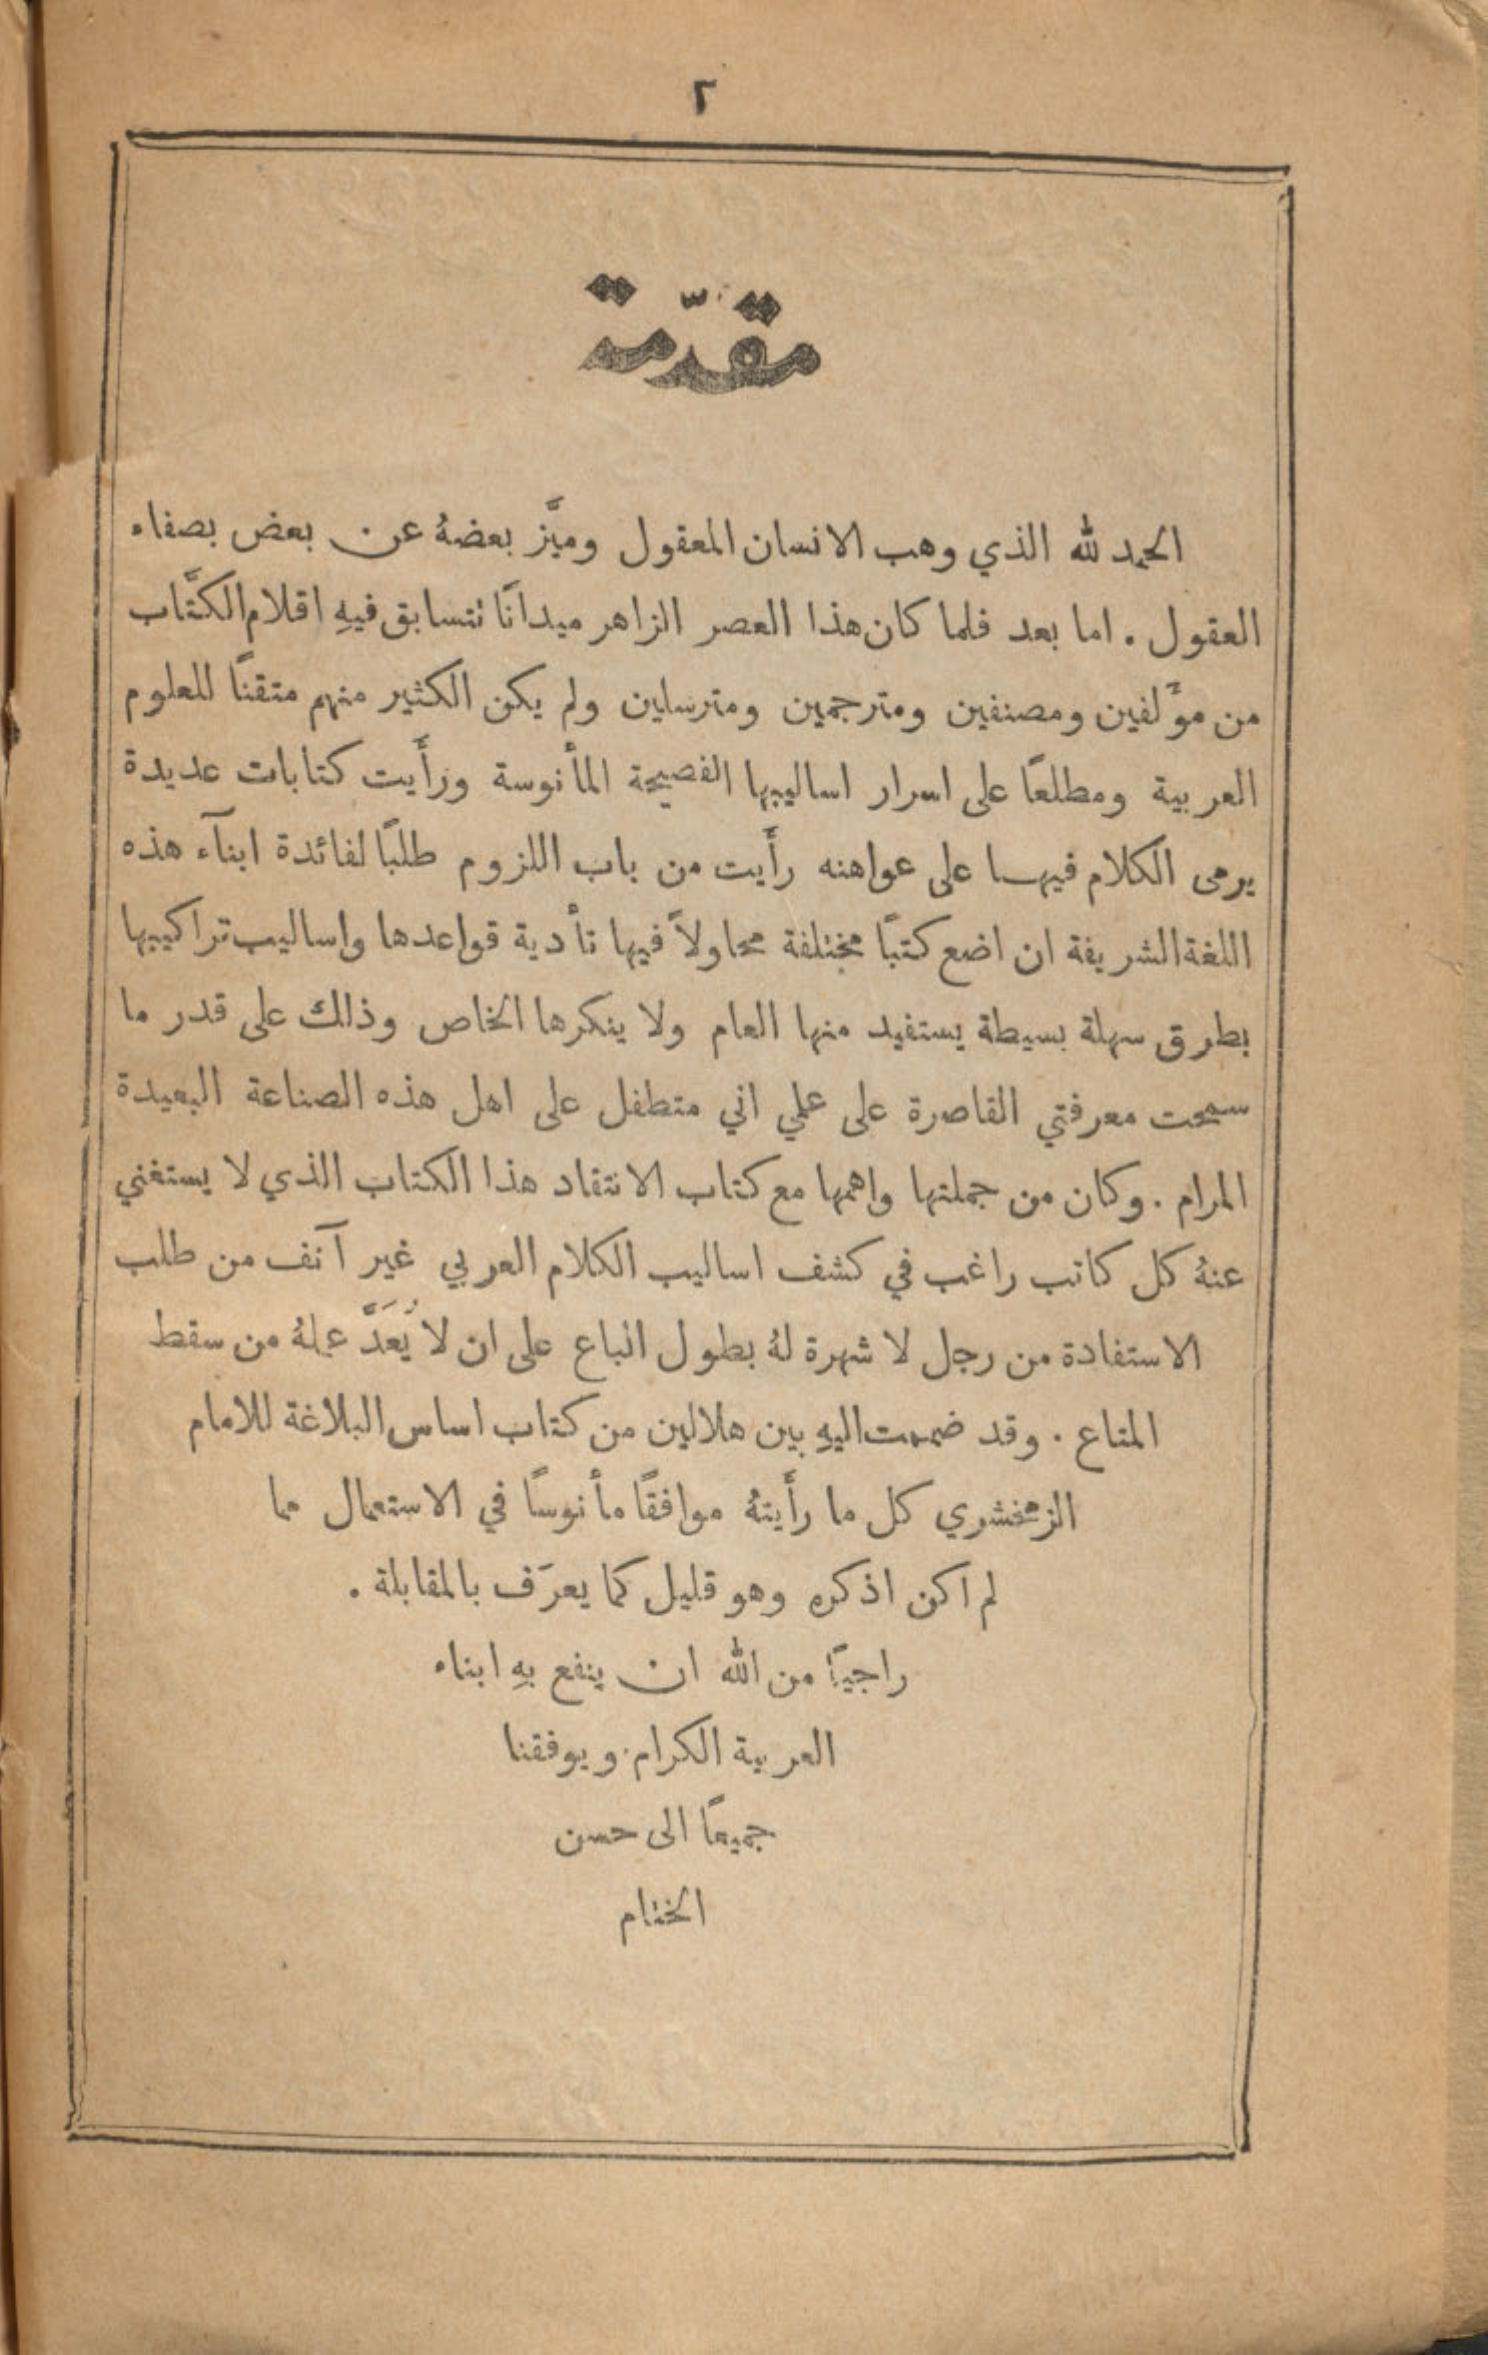 ٢
مقدّمة
الحمد لله الذي وهب الانسان المعقول وميَّز بعضهُ عن بعض بصفاء
العقول . اما بعد فلما كان هذا العصر الزاهر ميدانًا تتسابق فيهِ اقلام الكتَّاب
من مؤَلفين ومصنفين ومترجمين ومترسلين ولم يكن الكثير منهم متقنًا للعلوم
العربية ومطلعًا على اسرار اساليبها الفصيحة المأنوسة ورأَيت كتابات عديدة
يرمى الكلام فيها على عواهنه رأَيت من باب اللزوم طلبًا لفائدة ابنآء هذه
اللغة الشريفة ان اضع كتبًا مختلفة محاولاً فيها تأدية قواعدها واساليب تراكيبها
بطرق سهلة بسيطة يستفيد منها العام ولا ينكرها الخاص وذلك على قدر ما
سمحت معرفتي القاصرة على علمي اني متطفل على اهل هذه الصناعة البعيدة
المرام . وكان من جملتها واهمها مع كتاب الانتقاد هذا الكتاب الذي لا يستغني
عنهُ كل كاتب راغب في كشف اساليب الكلام العربي غير آنف من طلب
الاستفادة من رجل لا شهرة لهُ بطول الباع على ان لا يُعَدَّ عملهُ من سقط
المتاع . وقد ضممت اليهِ بين هلالين من كتاب اساس البلاغة للامام
الزمخشري كل ما رأَيتهُ موافقًا مأنوسًا في الاستعمال مما
لم اكن اذكره وهو قليل كما يعرَف بالمقابلة .
راجيًا من الله ان ينفع بهِ ابناء
العربية الكرام . ويوفقنا
جميعًا الى حسن
الختام